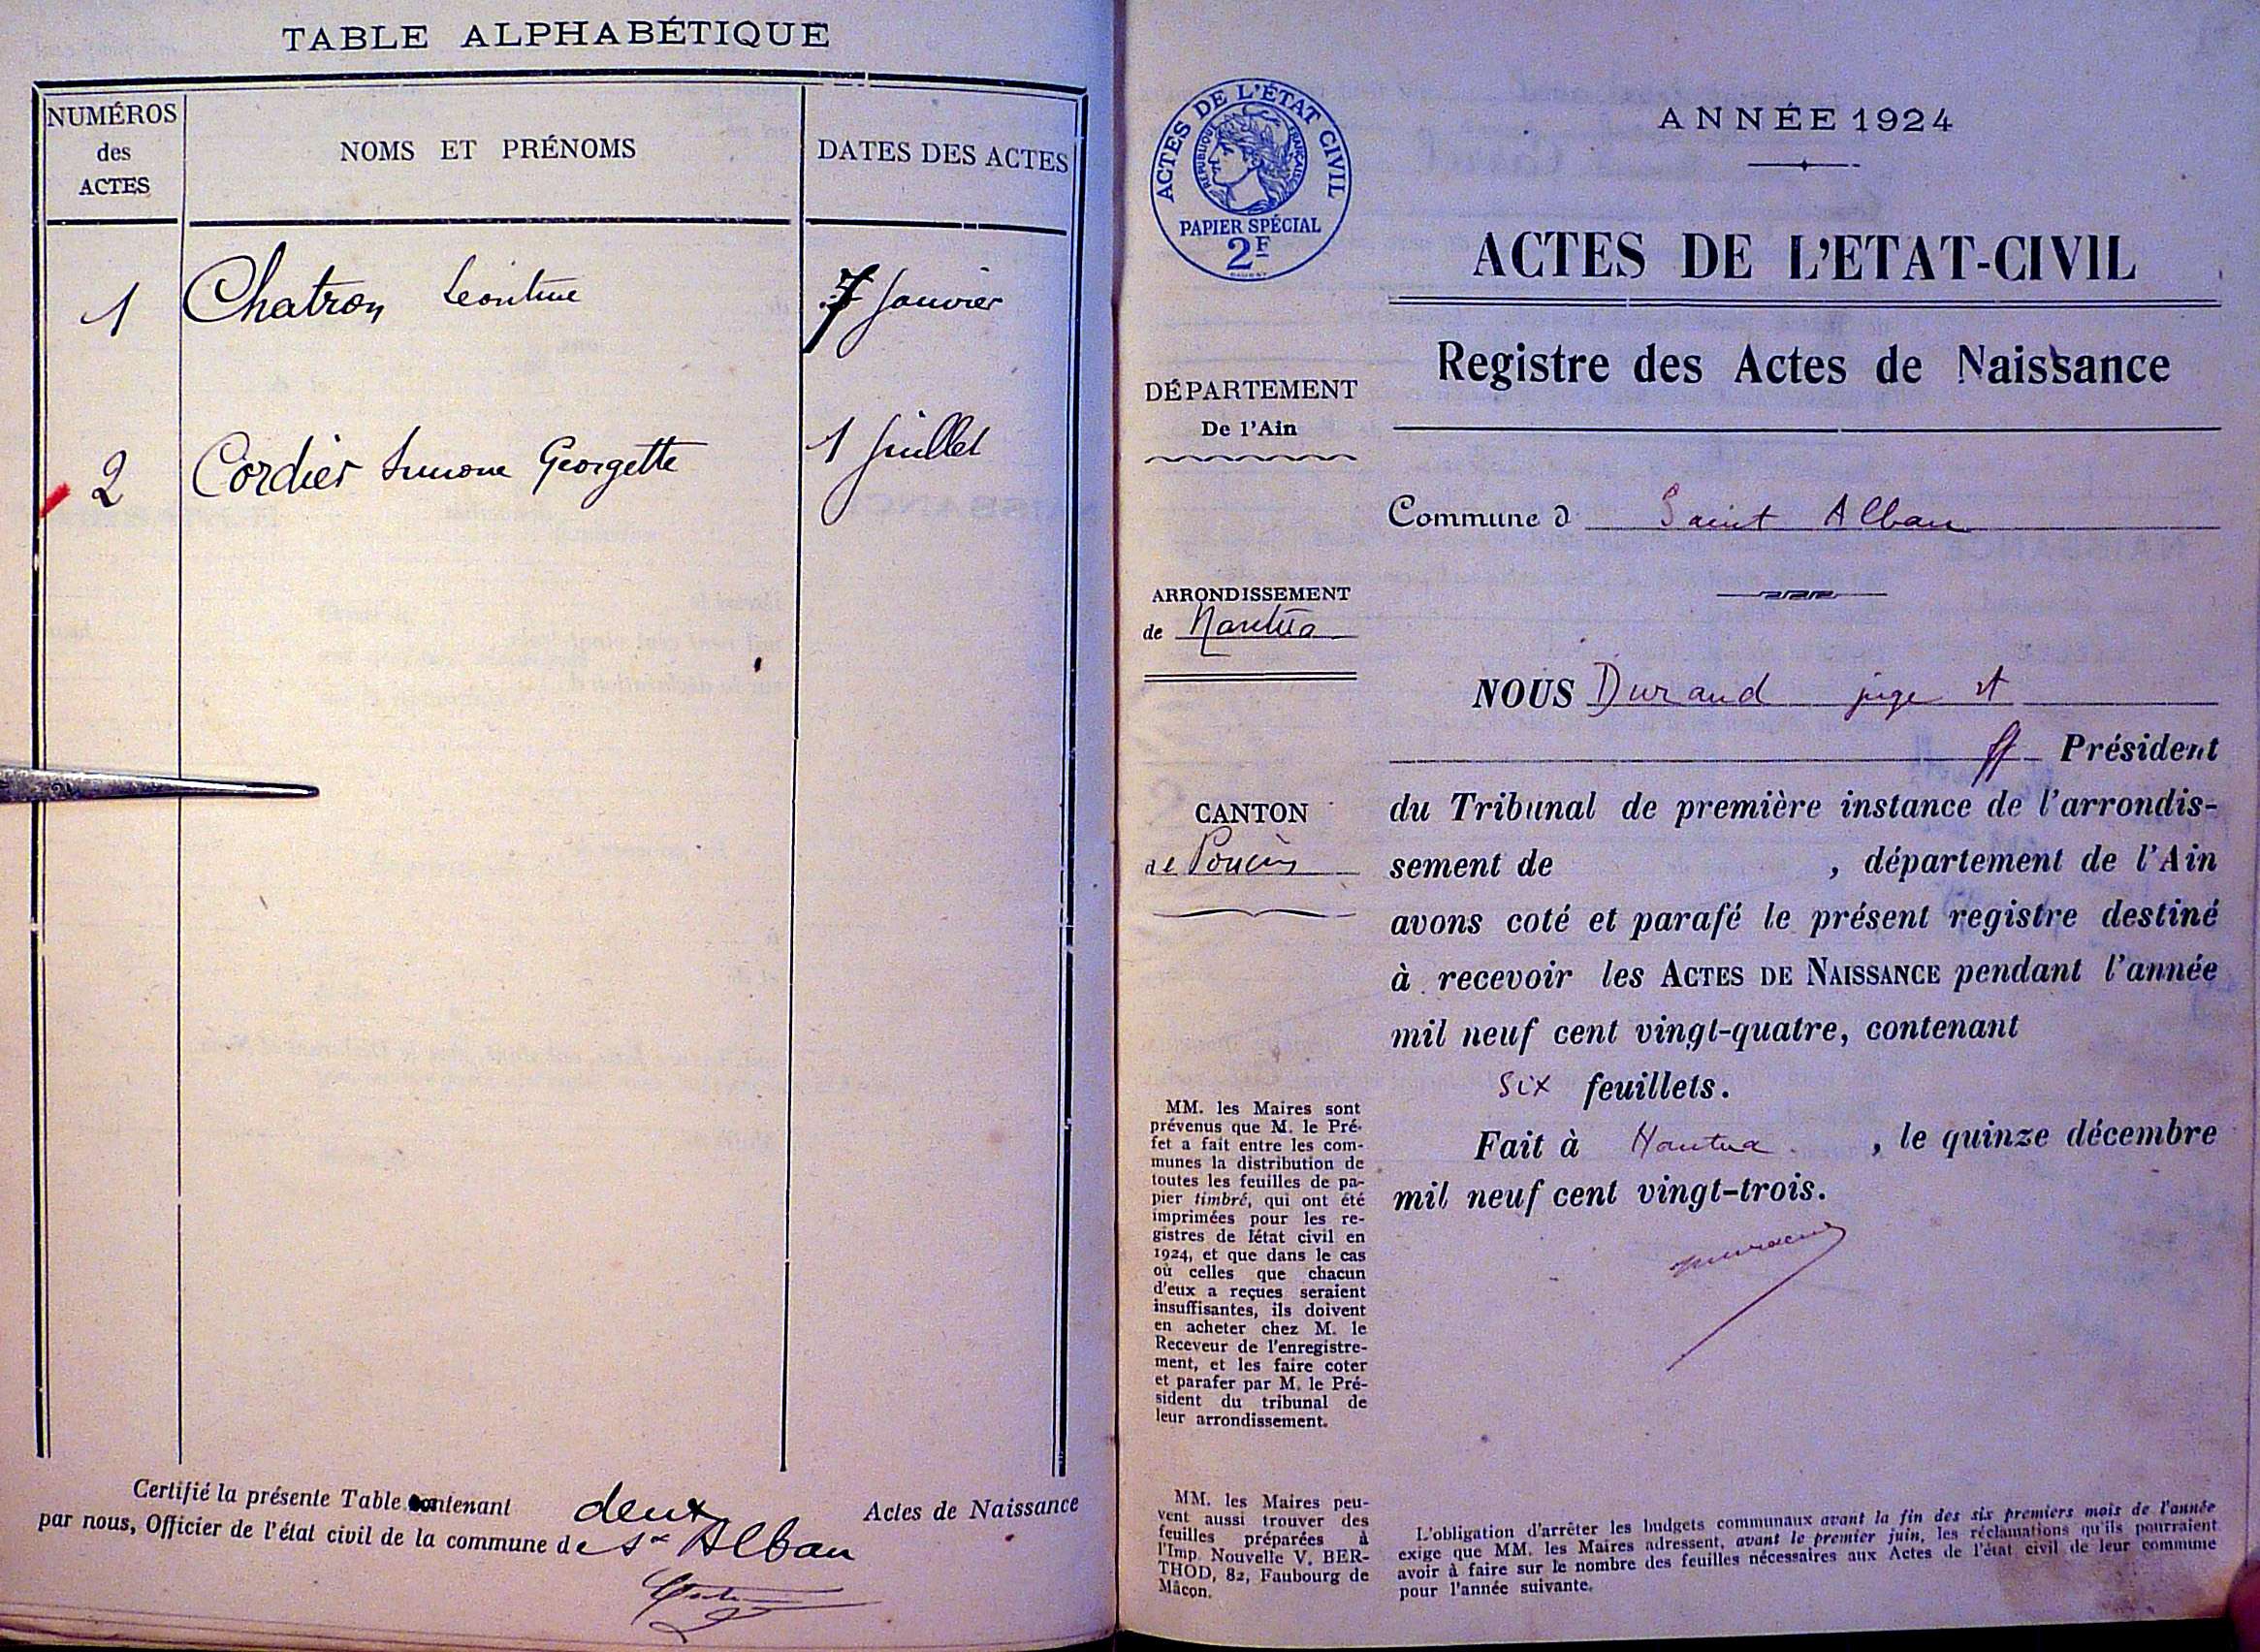 TABLE ALPHABÉTIQUE
NUMÉROS
des
ACTES
NOMS ET PRÉNOMS
DATES DES ACTES
1 Chatron Léontine 7 Janvier
2 Cordier Simone Georgette 1 Juillet
Certifié la présente Table contenant deux Actes de Naissance
par nous, Officier de l'état civil de la commune de St Alban
ACTES DE L'ÉTAT CIVIL
RÉPUBLIQUE FRANÇAISE
PAPIER SPÉCIAL
2F
DÉPARTEMENT
De l'Ain
ARRONDISSEMENT
de Nantua
CANTON
de Poncin
MM. les Maires sont
prévenus que M. le Pré-
fet a fait entre les com-
munes la distribution de
toutes les feuilles de pa-
pier timbré, qui ont été
imprimées pour les re-
gistres de létat civil en
1924, et que dans le cas
où celles que chacun
d'eux a reçues seraient
insuffisantes, ils doivent
en acheter chez M. le
Receveur de l'enregistre-
ment, et les faire coter
et parafer par M. le Pré-
sident du tribunal de
leur arrondissement.
MM. les Maires peu-
vent aussi trouver des
feuilles préparées à
l'Imp. Nouvelle V. BER-
THOD, 82, Faubourg de
Mâcon.
ANNÉE 1924
ACTES DE L'ETAT-CIVIL
Registre des Actes de Naissance
Commune d Saint Alban
NOUS Durand juge et
ff Président
du Tribunal de première instance de l'arrondis-
sement de , département de l'Ain
avons coté et parafé le présent registre destiné
à recevoir les ACTES DE NAISSANCE pendant l'année
mil neuf cent vingt-quatre, contenant
six feuillets.
Fait à Nantua , le quinze décembre
mil neuf cent vingt-trois.
L'obligation d'arrêter les budgets communaux avant la fin des six premiers mois de l'année
exige que MM. les Maires adressent, avant le premier juin, les réclamations qu'ils pourraient
avoir à faire sur le nombre des feuilles nécessaires aux Actes de l'état civil de leur commune
pour l'année suivante.